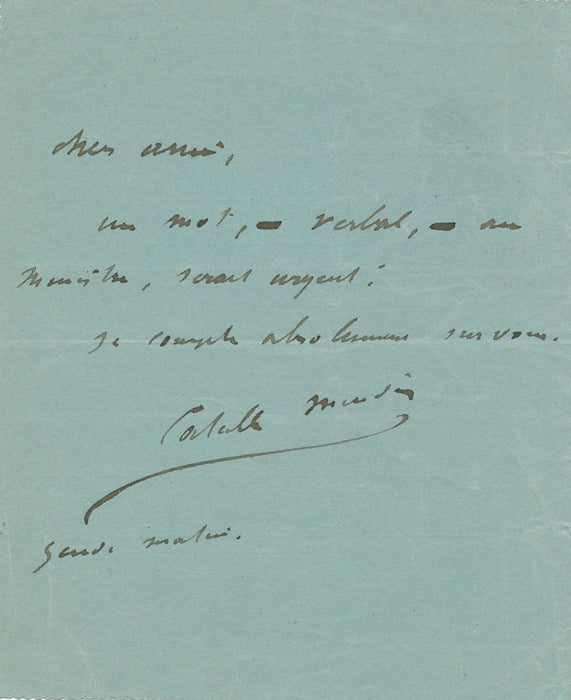 cher ami,
un mot, — verbal, — au
Ministre, serait urgent !
Je compte absolument sur vous.
Catulle Mendès
Jeudi matin.